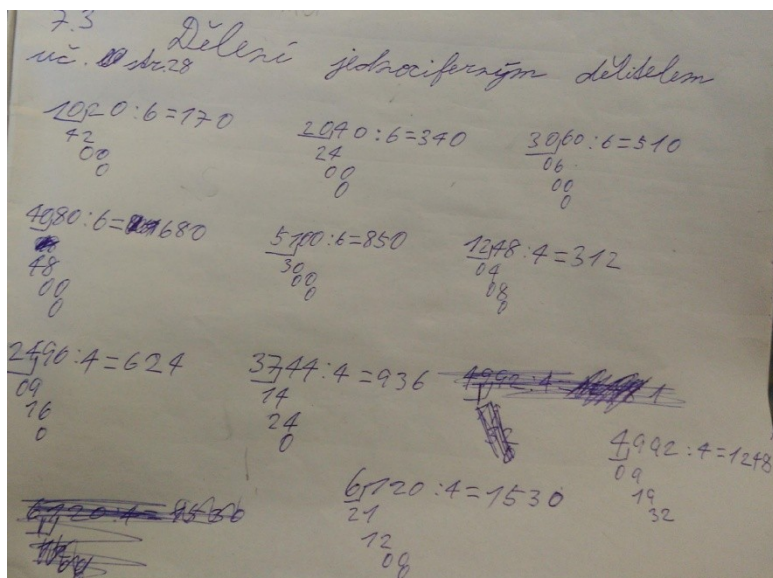 7.3 Dělení jednociferným dělitelem
uč. str.28
1020:6=170
42
00
0
2040:6=340
24
00
0
3060:6=510
06
00
0
4080:6=680
48
00
0
5100:6=850
30
00
0
1248:4=312
04
08
0
2496:4=624
09
16
0
3744:4=936
14
24
0
4992:4=1248
09
19
32
6120:4=1530
21
12
00